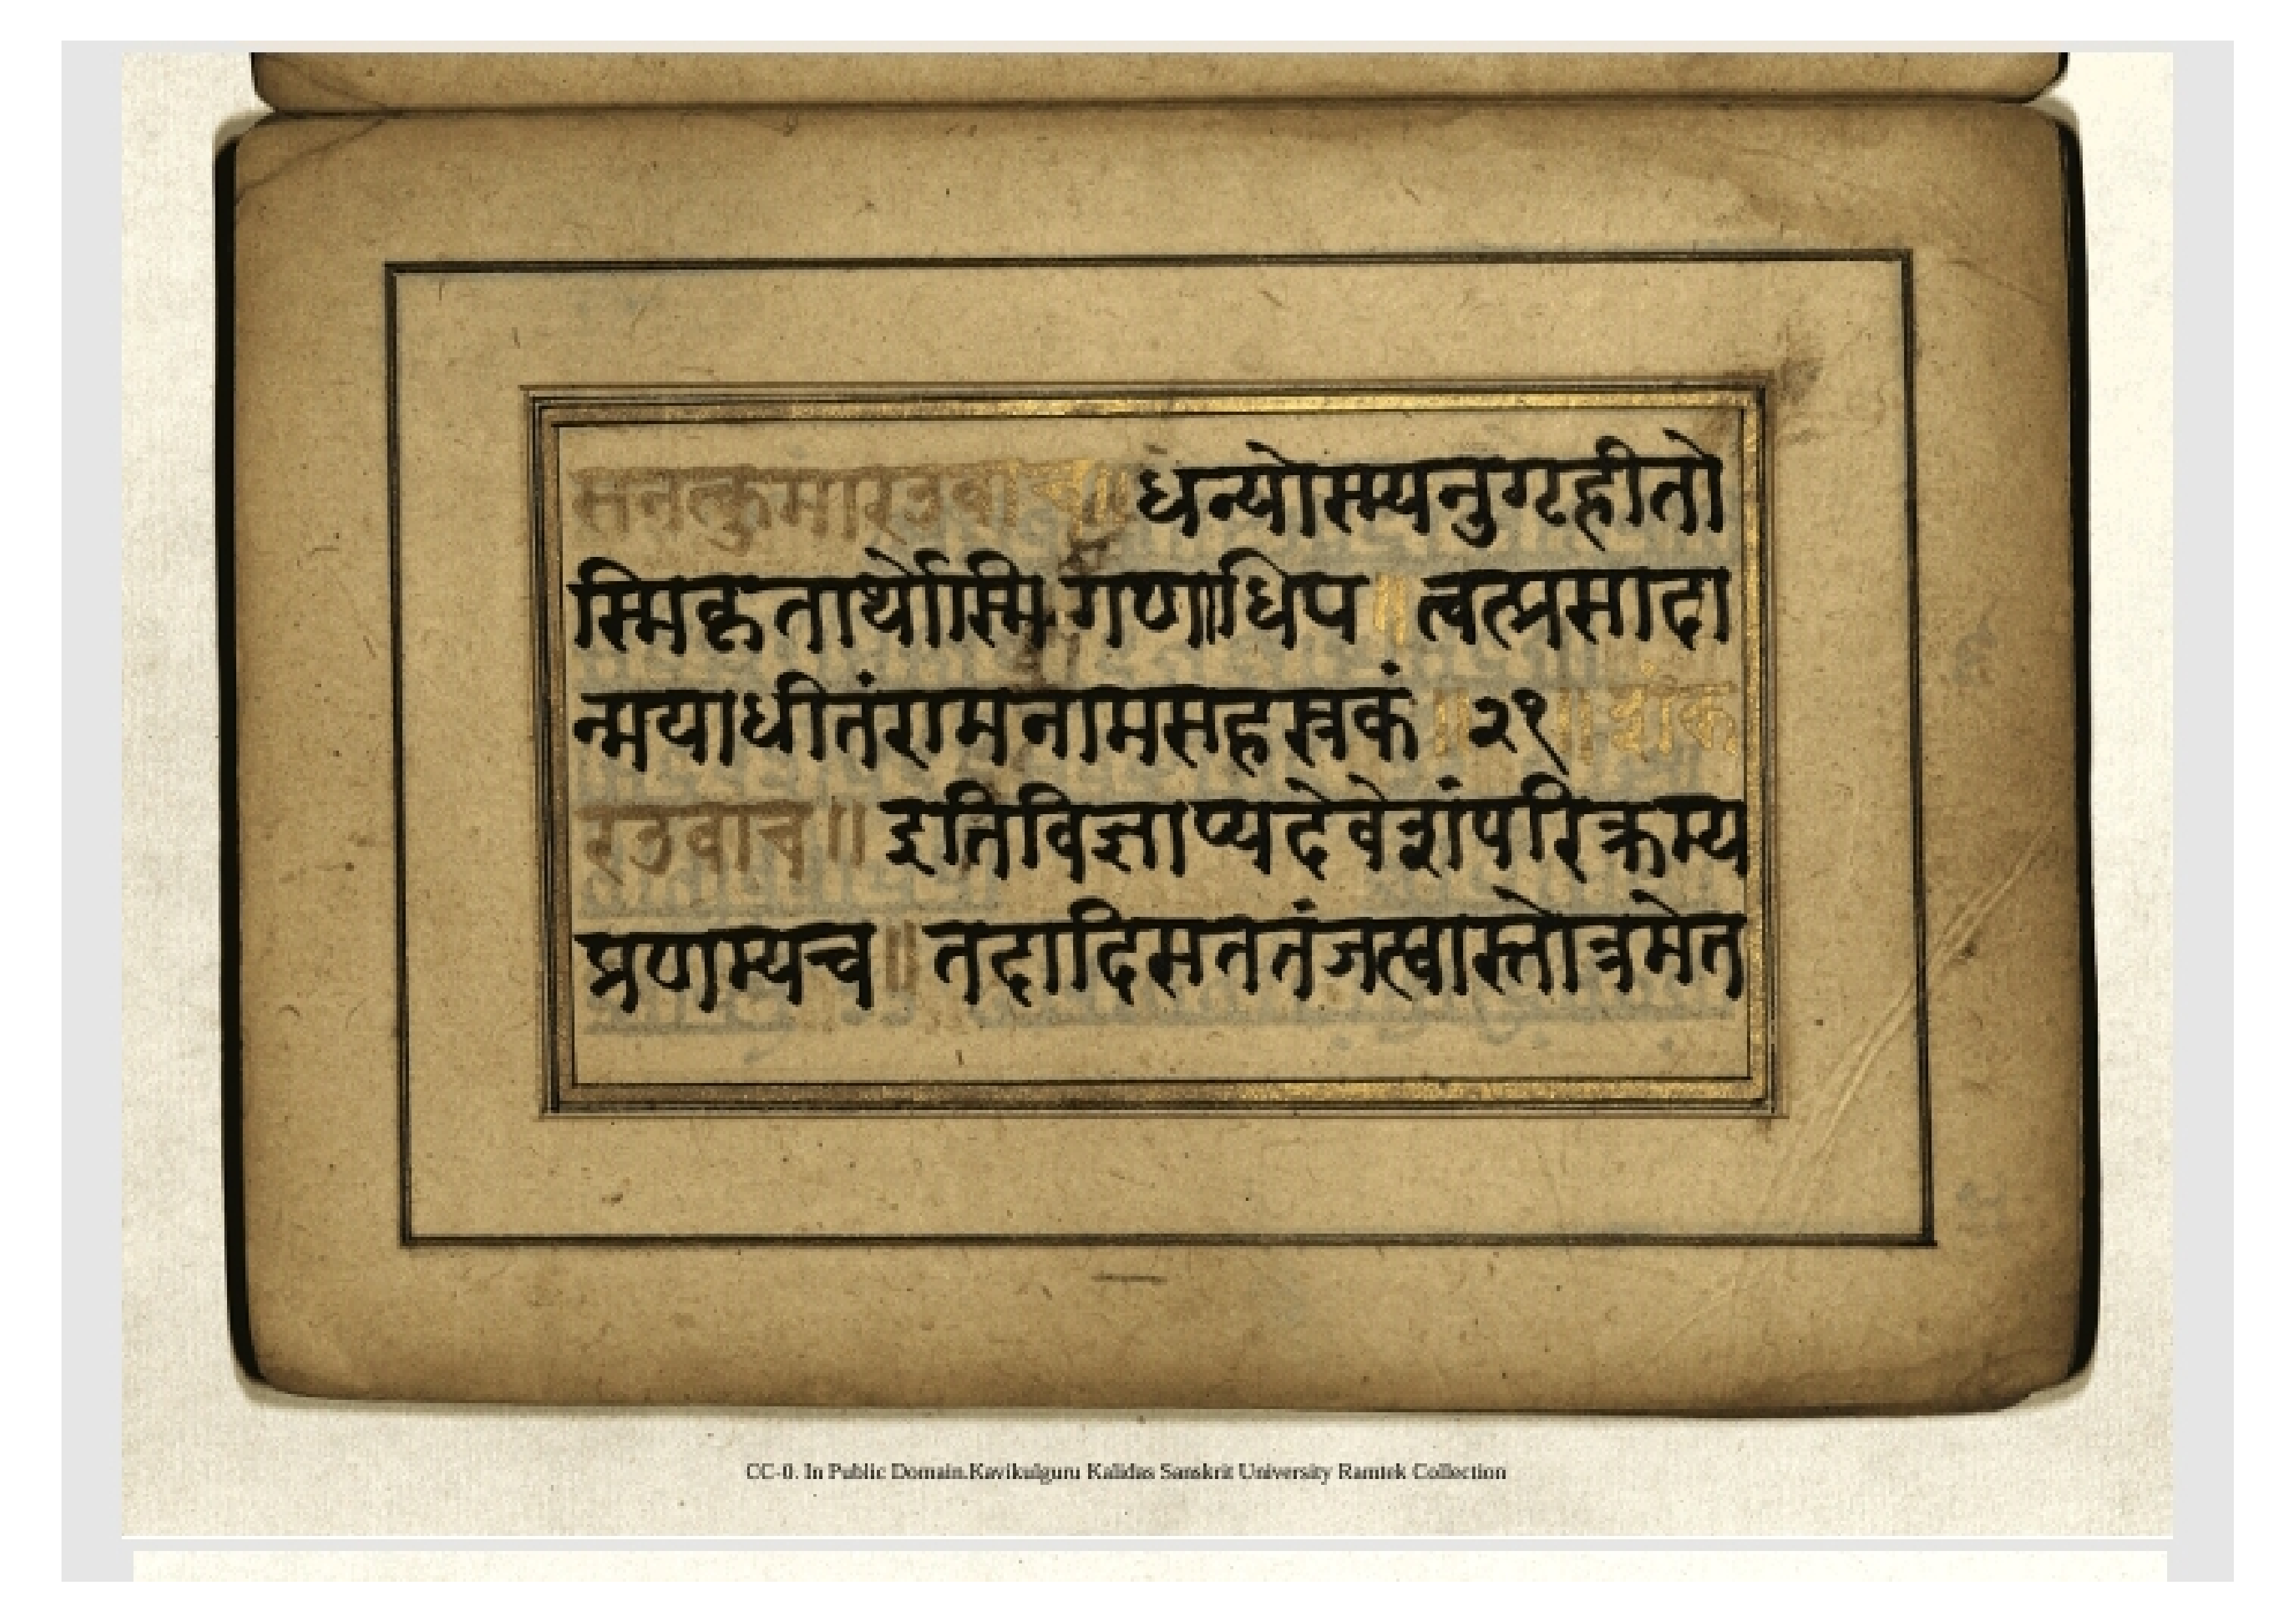 सनत्कुमारउवाच॥धन्योस्म्यनुगृहीतो
स्मिकृतार्थोस्मि गणाधिप॥त्वत्प्रसादा
न्मयाधीतंरामनामसहस्रकं॥२१॥शंक
रउवाच॥इतिविज्ञाप्यदेवेशंपरिक्रम्य
प्रणम्यच॥तदादिसततंजत्वास्तोत्रमेत
CC-0. In Public Domain.Kavikulguru Kalidas Sanskrit University Ramtek Collection